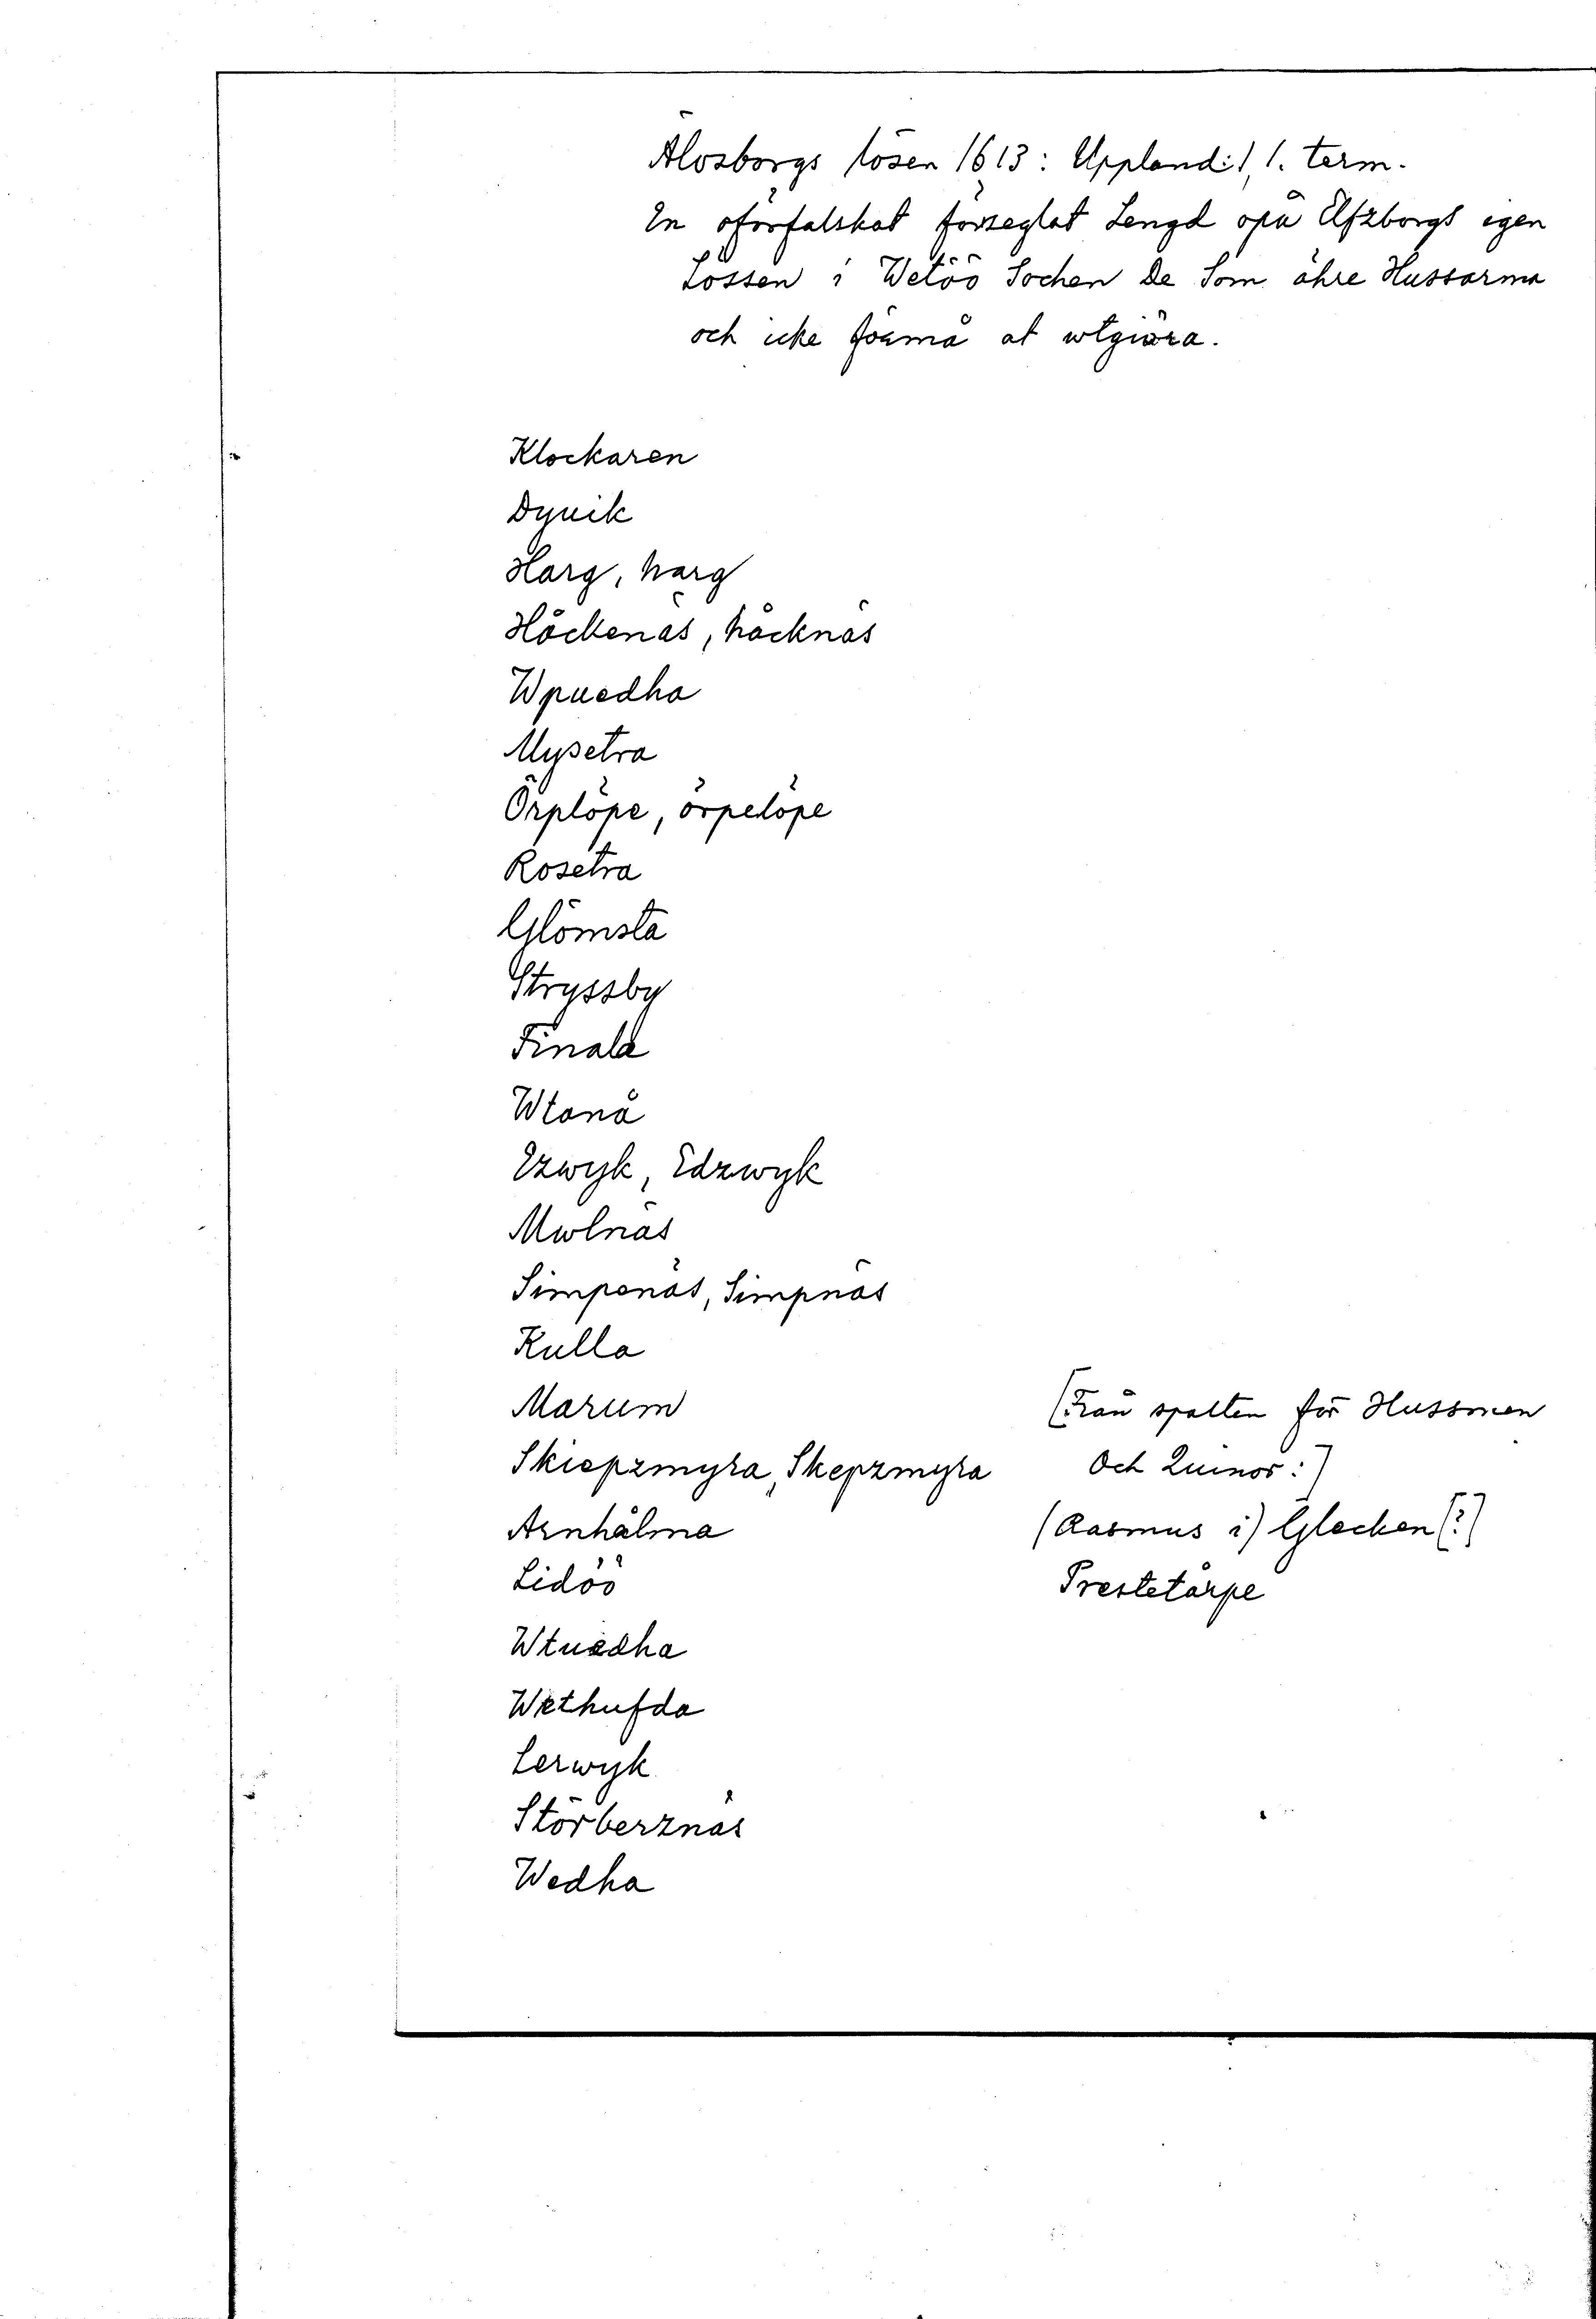 Älvsborgs lösen 1613: Uppland:1, 1. term.
En oförfalskat förseglat Lengd opå Elfzborgs igen
Lössen i Wetöö Sochen de Som ähre Hussarma
och icke förmå at wtgiöra.
Klockaren
Dyuik
Harg, harg
Höckenäs, häcknäs
Wpuedha
Mysetra
Örplöpe, örpelöpe
Rosetra
Glömsta
Stryssby
Finala
Wtanå
Ezwyk, Edzwyk
Mwlnäs
Simpenäs, Simpnäs
Kulla
Marum
Skiepzmyra, Skepzmyra
Arnhålma
Lidöö
Wtuedha
Wethufda
Lerwyk
Störberznäs
Wedha
[Från spalten för Hussmen
Och Quinor:]
(Rasmus i) Glecken [?]
Prestetårpe